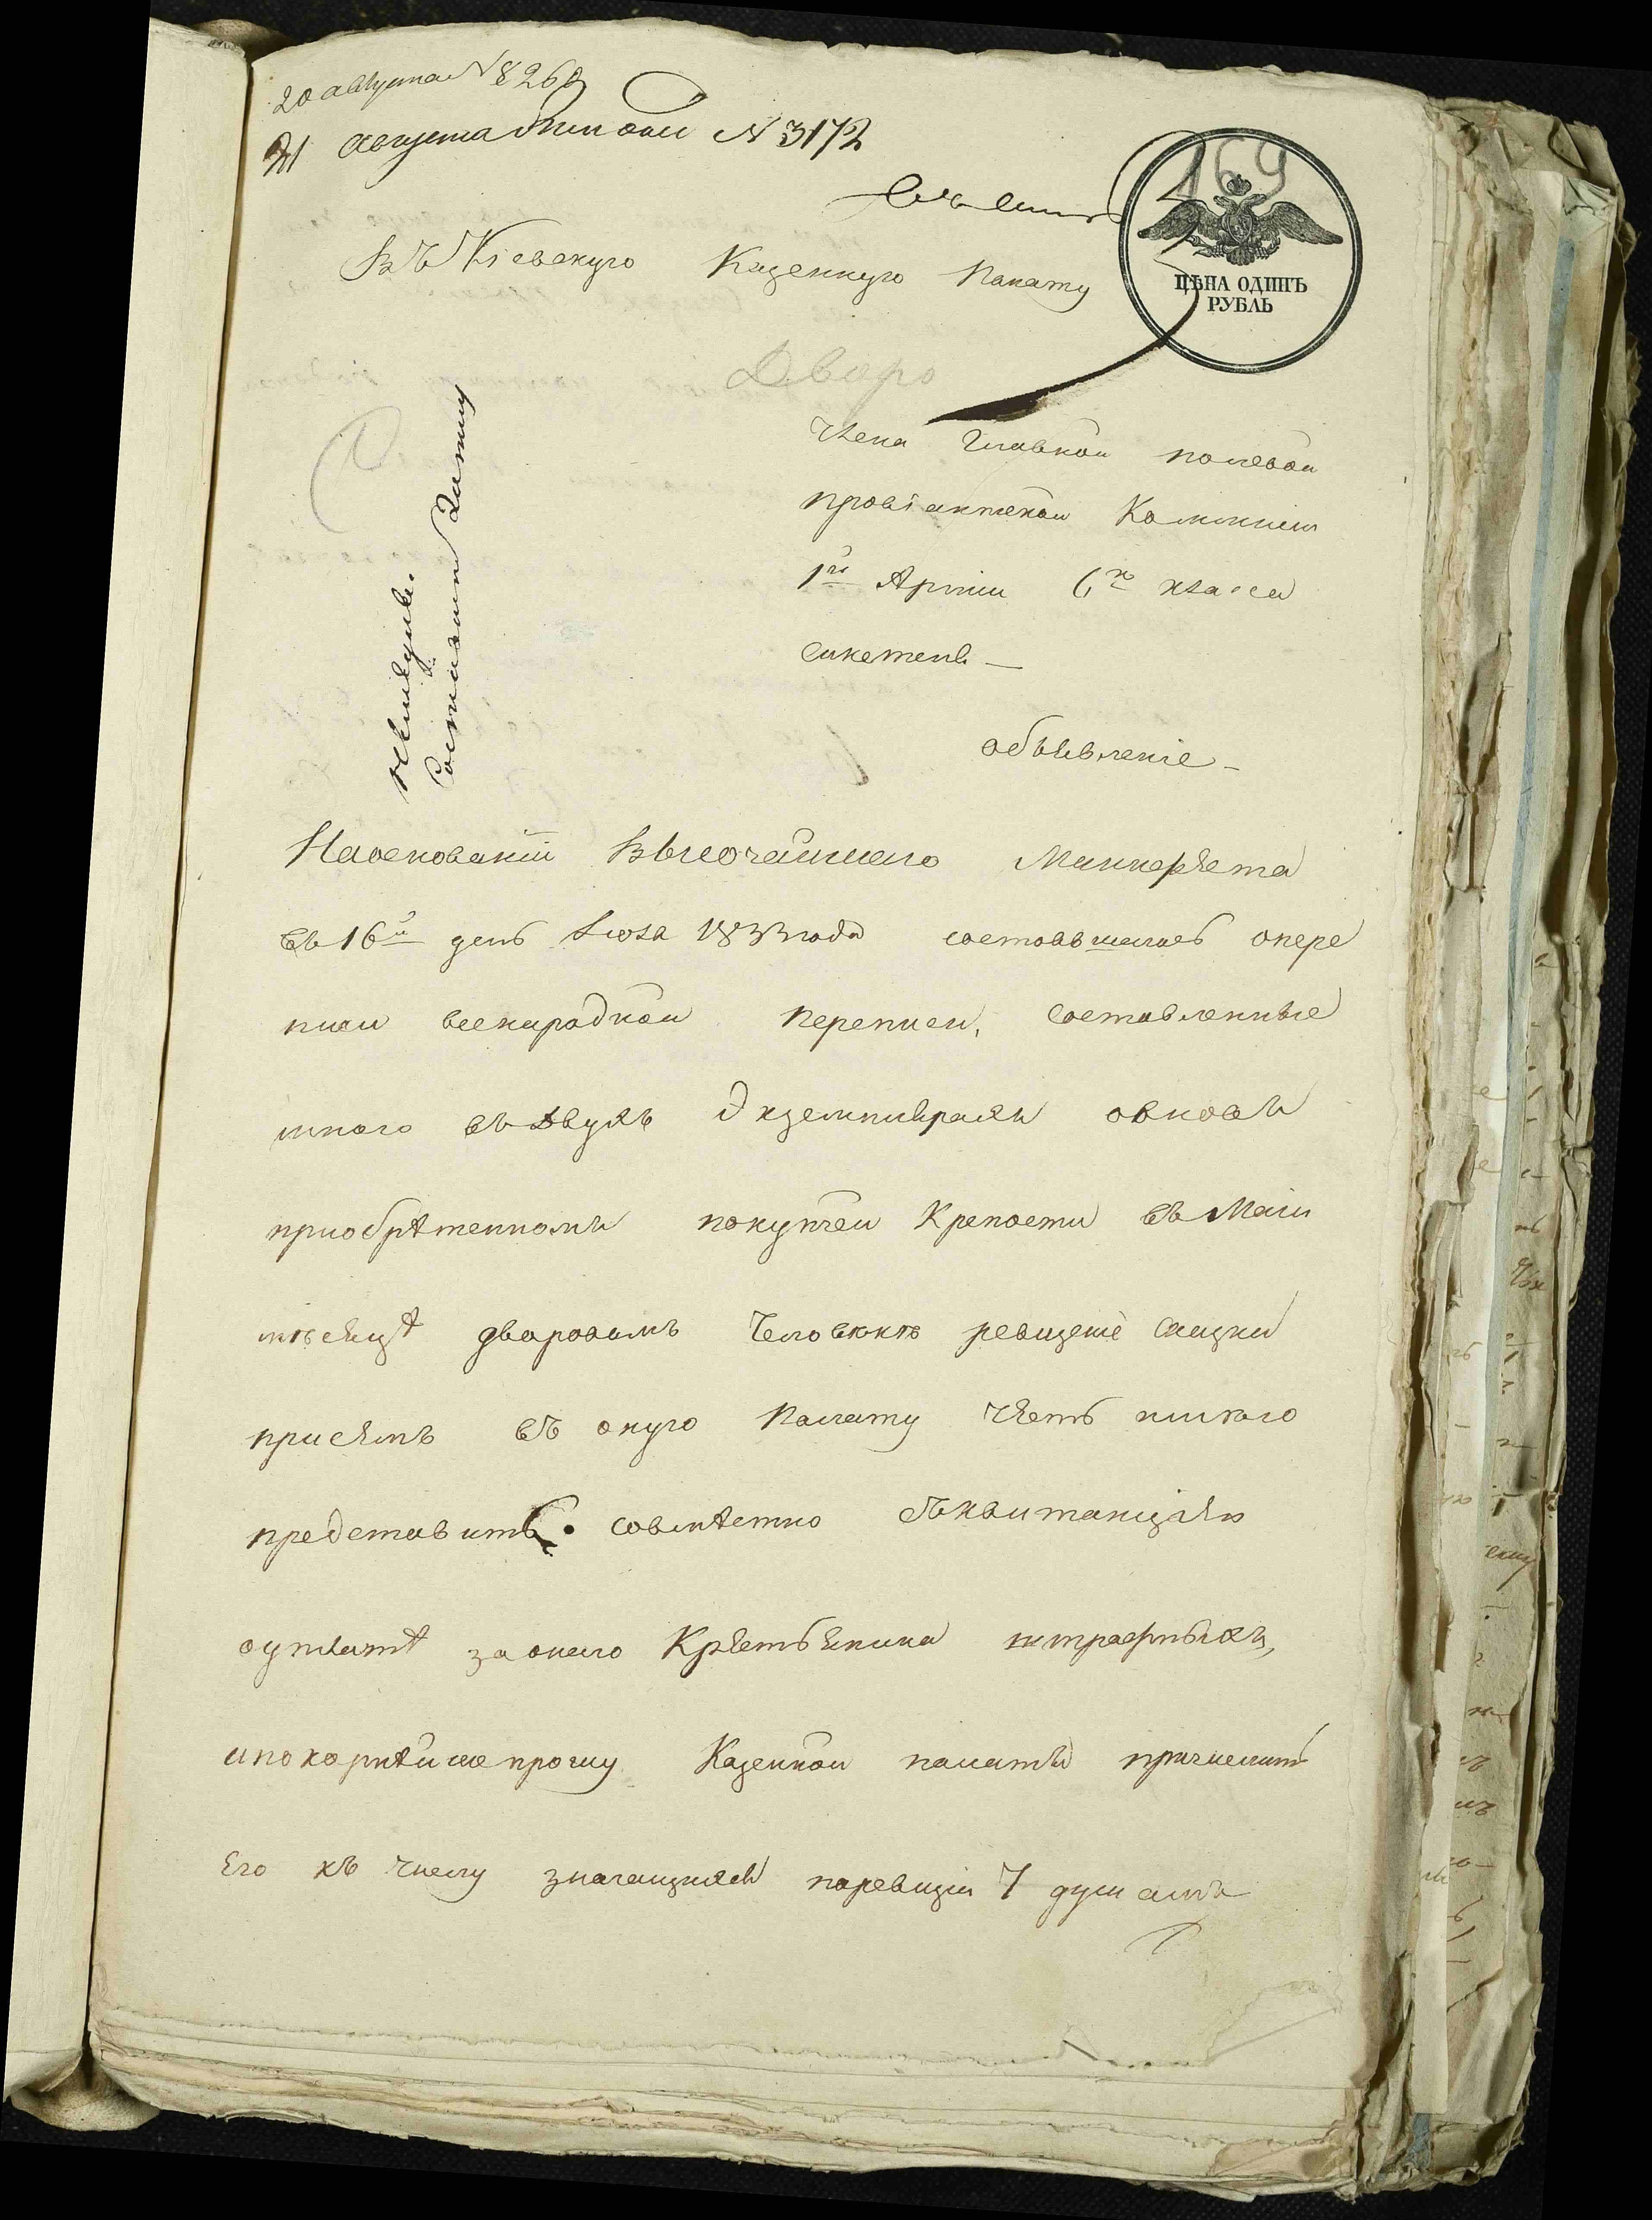 20 августа N 8260
21 августа N 3172
169
Въ Кіевскую Казенную Палату
ЦѢНА ОДИНЪ
РУБЛЬ
Дворо
Члена Главной полевой
провіантской Комисіи
1й Арміи 6го класса
объявленіе
Наоснованіи Высочайшаго Манифеста
въ 16й день Іюля 1833 года состоявшагось опере
писи всенародной переписи, составленные
мною въ двухъ Экземплярахъ овновь
приобрѣтенномъ покупчей крепости въ Маіи
мѣсяцѣ дворовомъ человѣкѣ ревизскіе скаски
присемъ въ оную Палату честь имѣю
представить совмѣстно съквитанціею
оуплатѣ заонаго Крестьянина штрафныхъ,
ипокорнѣйше прошу Казенной палаты причислить
Его къ числу значащихся поревизіи 7 душамъ